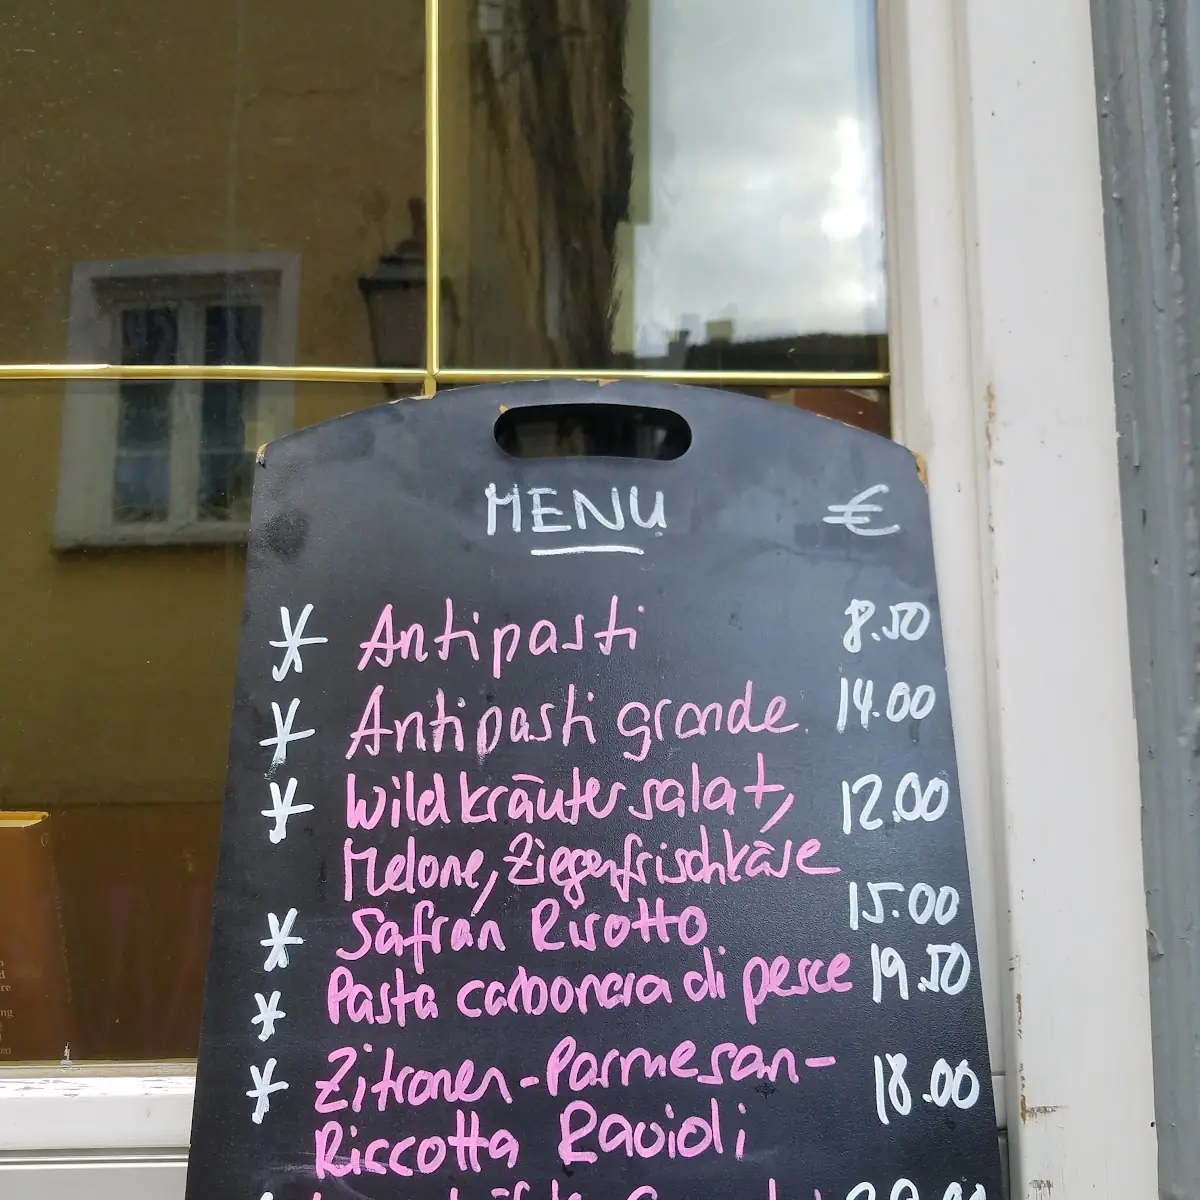 MENU €
* Antipasti 8.50
* Antipasti grande 14.00
* Wildkräutersalat, 12.00
Melone, Ziegenfrischkäse
* Safran Risotto 15.00
* Pasta carbonara di pesce 19.50
* Zitronen-Parmesan- 18.00
Riccotta Ravioli